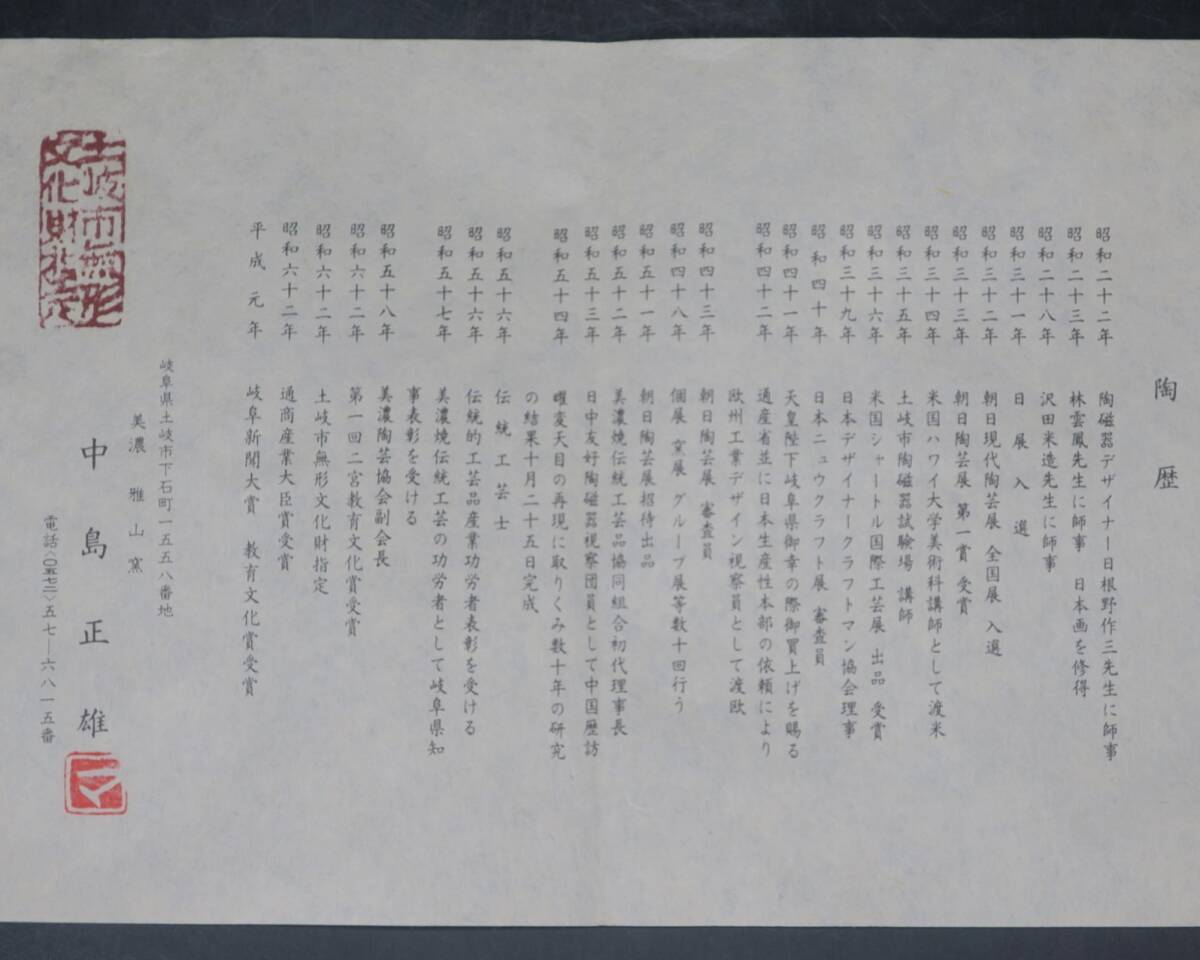 陶歴
昭和二十二年 陶磁器デザイナー日根野作三先生に師事
昭和二十三年 林雲鳳先生に師事 日本画を修得
昭和二十八年 沢田米造先生に師事
昭和三十一年 日展入選
昭和三十二年 朝日現代陶芸展 全国展 入選
昭和三十三年 朝日陶芸展 第一賞 受賞
昭和三十四年 米国ハワイ大学美術科講師として渡米
昭和三十五年 土岐市陶磁器試験場 講師
昭和三十六年 米国シャートル国際工芸展 出品 受賞
昭和三十九年 日本デザイナークラフトマン協会理事
昭和四十年 日本ニュウクラフト展 審査員
昭和四十一年 天皇陛下岐阜県御幸の際御買上げを賜る
昭和四十二年 通産省並に日本生産性本部の依頼により
欧州工業デザイン視察員として渡欧
昭和四十三年 朝日陶芸展 審査員
昭和四十八年 個展 窯展 グループ展等数十回行う
昭和五十一年 朝日陶芸展招待出品
昭和五十二年 美濃焼伝統工芸品協同組合初代理事長
昭和五十三年 日中友好陶磁器視察団員として中国歴訪
昭和五十四年 曜変天目の再現に取りくみ数十年の研究
の結果十月二十五日完成、
昭和五十六年 伝統工芸士
昭和五十六年 伝統的工芸品産業功労者表彰を受ける
昭和五十七年 美濃焼伝統工芸の功労者として岐阜県知
事表彰を受ける
昭和五十八年 美濃陶芸協会副会長
昭和六十二年 第一回二宮教育文化賞受賞
昭和六十二年 土岐市無形文化財指定
昭和六十二年 通商産業大臣賞受賞
平成元年 岐阜新聞大賞 教育文化賞受賞
岐阜県土岐市下石町一五五八番地
美濃 雅山窯
中島正雄
電話〈〇五七二〉五七―六八一五番
土岐市無形
文化財指定